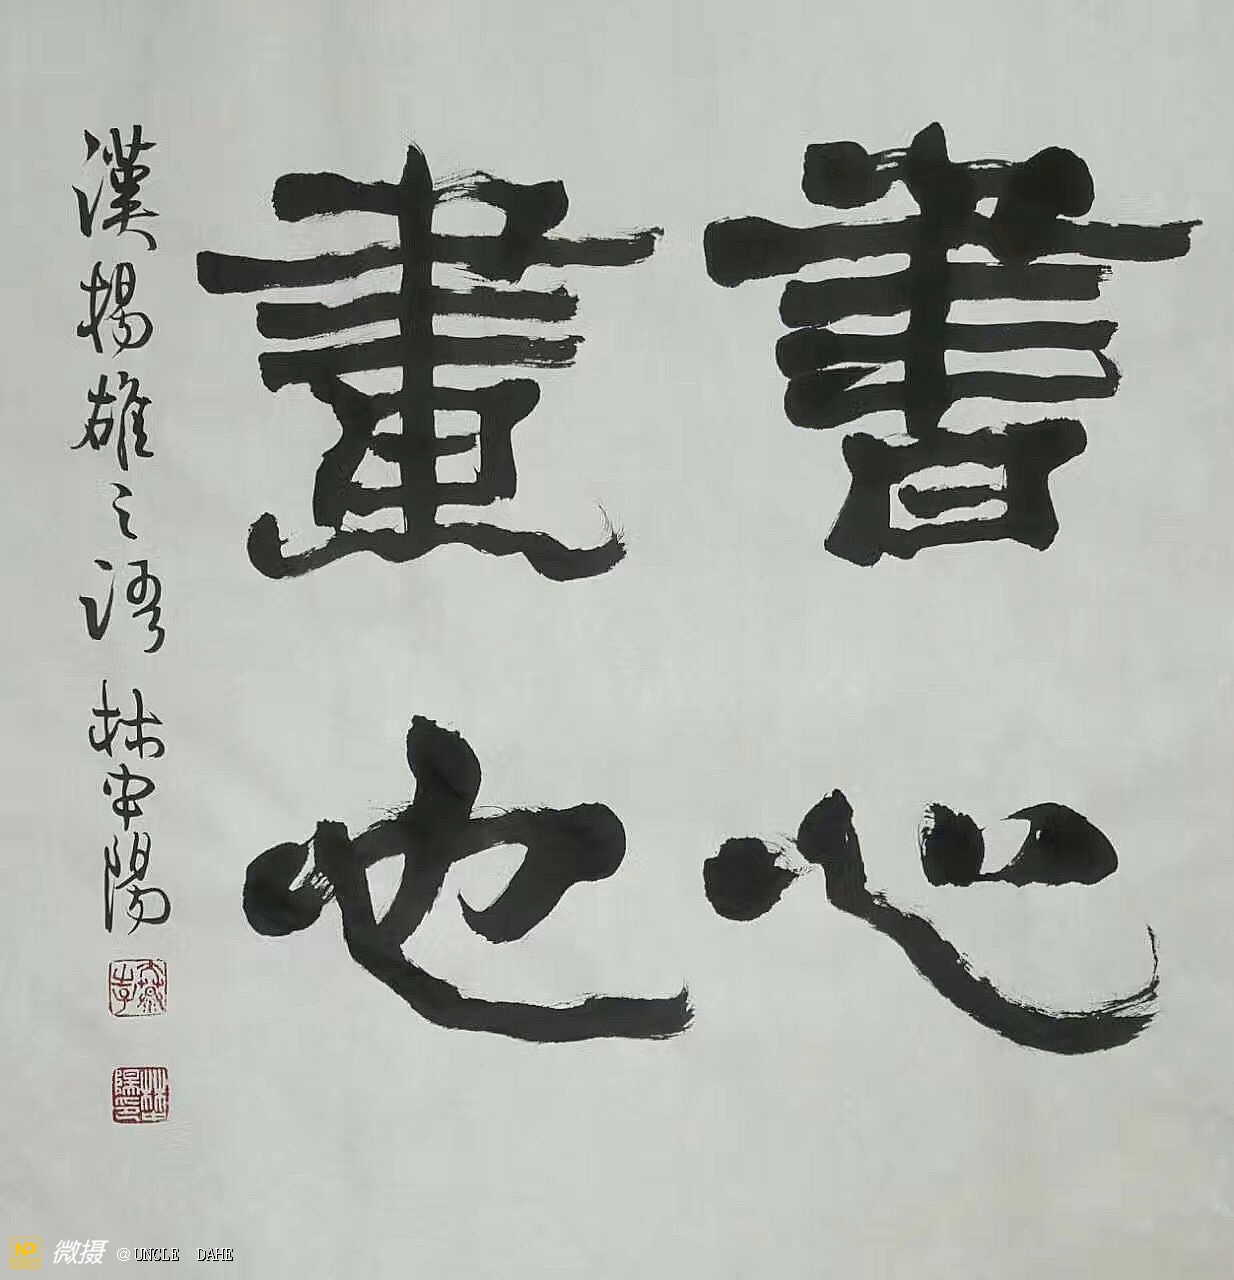 書心
畫也
漢楊雄之語 林中陽
微摄 @UNCLE DAHE